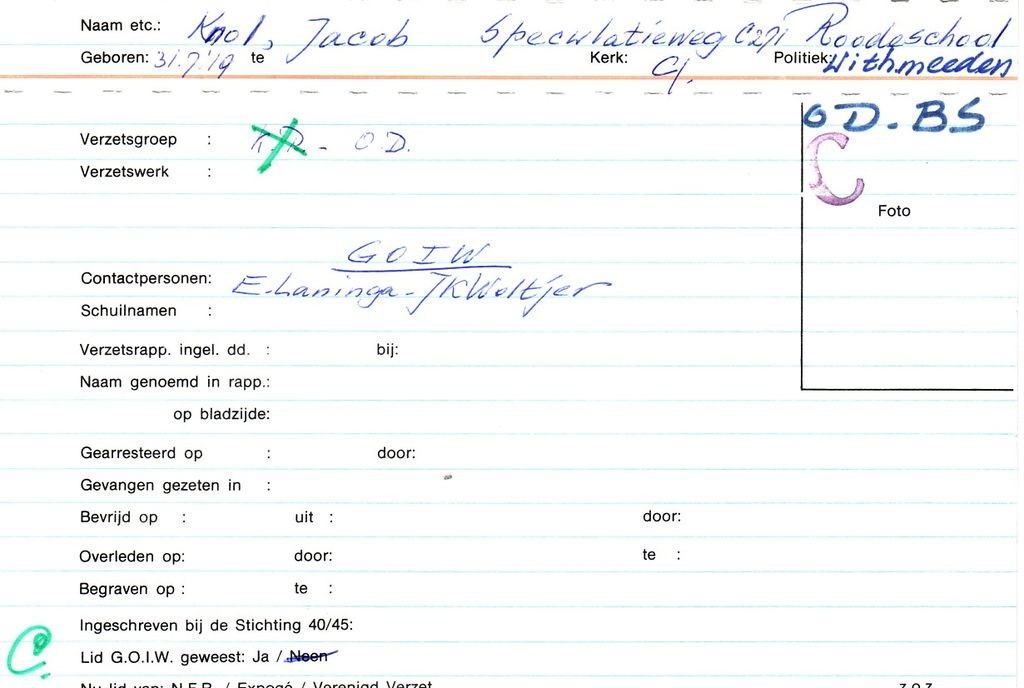 Naam etc.: Knol, Jacob Speculatieweg C271 Roodeschool
Geboren: 31.7.'19 te Kerk: Cj. Politiek: Withmeeden
OD. BS
Verzetsgroep : K.P. - O.D.
C
Verzetswerk :
Foto
GOIW
Contactpersonen: E. Laninga - JK Woltjer
Schuilnamen :
Verzetsrapp. ingel. dd. : bij:
Naam genoemd in rapp.:
op bladzijde:
Gearresteerd op : door:
Gevangen gezeten in :
Bevrijd op : uit : door:
Overleden op: door: te :
Begraven op : te :
Ingeschreven bij de Stichting 40/45:
C
Lid G.O.I.W. geweest: Ja / Neen
Nu lid van: N.F.R. / Expogé / Verenigd Verzet